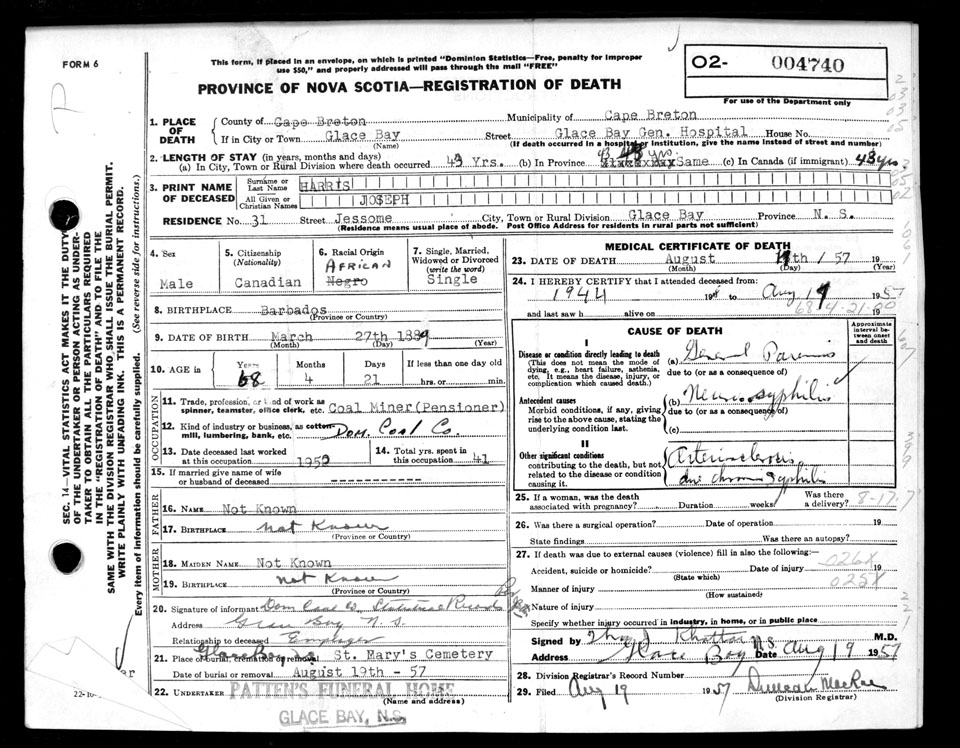 FORM 6
This form, if placed in an envelope, on which is printed "Dominion Statistics—Free, penalty for improper
use $50," and properly addressed will pass through the mail "FREE"
O2- 004740
For use of the Department only
PROVINCE OF NOVA SCOTIA—REGISTRATION OF DEATH
1. PLACE OF DEATH
County of Cape Breton Municipality of Cape Breton
If in City or Town Glace Bay Street Glace Bay Gen. Hospital House No.
(Name) (If death occurred in a hospital or institution, give the name instead of street and number)
2. LENGTH OF STAY (in years, months and days)
(a) In City, Town or Rural Division where death occurred 43 Yrs. (b) In Province 43 yrs. Same (c) In Canada (if immigrant) 43 yrs
3. PRINT NAME OF DECEASED
Surname or Last Name HARRIS
All Given or Christian Names JOSEPH
RESIDENCE No. 31 Street Jessome City, Town or Rural Division Glace Bay Province N. S.
(Residence means usual place of abode. Post Office Address for residents in rural parts not sufficient)
4. Sex
Male
5. Citizenship
(Nationality)
Canadian
6. Racial Origin
AFRICAN
Negro
7. Single, Married,
Widowed or Divorced
(write the word)
Single
8. BIRTHPLACE Barbados
(Province or Country)
9. DATE OF BIRTH March 27th 1889
(Month) (Day) (Year)
10. AGE in
Years 68
Months 4
Days 21
If less than one day old
hrs. or min.
OCCUPATION
11. Trade, profession, or kind of work as
spinner, teamster, office clerk, etc. Coal Miner(Pensioner)
12. Kind of industry or business, as cotton-
mill, lumbering, bank, etc. Dom. Coal Co.
13. Date deceased last worked
at this occupation 1952
14. Total yrs. spent in
this occupation 41
15. If married give name of wife
or husband of deceased -------------
FATHER
16. NAME Not Known
17. BIRTHPLACE Not Known
(Province or Country)
MOTHER
18. MAIDEN NAME Not Known
19. BIRTHPLACE Not Known
(Province or Country)
20. Signature of informant Dom Coal Co. Statistical Records
Address Glace Bay N. S.
Relationship to deceased Employer
21. Place of burial, cremation or removal Glace Bay St. Mary's Cemetery
Date of burial or removal August 19th - 57
22. UNDERTAKER PATTEN'S FUNERAL HOME
(Name and address)
GLACE BAY, N.S.
MEDICAL CERTIFICATE OF DEATH
23. DATE OF DEATH August 17th / 57 19
(Month) (Day) (Year)
24. I HEREBY CERTIFY that I attended deceased from:
1944 19 to Aug 17 1957
and last saw h alive on 19
68-4-21-90
CAUSE OF DEATH
Approximate
interval be-
tween onset
and death
I
Disease or condition directly leading to death
(This does not mean the mode of
dying, e.g., heart failure, asthenia,
etc. It means the disease, injury, or
complication which caused death.)
(a) General Paresis
due to (or as a consequence of)
Antecedent causes
Morbid conditions, if any, giving
rise to the above cause, stating the
underlying condition last.
(b) Neurosyphilis
due to (or as a consequence of)
(c)
II
Other significant conditions
contributing to the death, but not
related to the disease or condition
causing it.
Arteriosclerosis
due chronic syphilis
25. If a woman, was the death
associated with pregnancy? Duration weeks? Was there
a delivery?
8-17-7
26. Was there a surgical operation? Date of operation 19
State findings Was there an autopsy?
27. If death was due to external causes (violence) fill in also the following:—
Accident, suicide or homicide? Date of injury 19
(State which)
026X
025X
Manner of injury
(How sustained)
Nature of injury
Specify whether injury occurred in industry, in home, or in public place
Signed by Thos J Khattar M.D.
Address Glace Bay N.S. Date Aug 19 1957
28. Division Registrar's Record Number
29. Filed Aug 19 1957 Duncan MacRae
(Division Registrar)
SEC. 14—VITAL STATISTICS ACT MAKES IT THE DUTY
OF THE UNDERTAKER OR PERSON ACTING AS UNDER-
TAKER TO OBTAIN ALL THE PARTICULARS REQUIRED
IN THE "REGISTRATION OF DEATH" AND TO FILE THE
SAME WITH THE DIVISION REGISTRAR WHO SHALL ISSUE THE BURIAL PERMIT.
WRITE PLAINLY WITH UNFADING INK. THIS IS A PERMANENT RECORD.
Every item of information should be carefully supplied. (See reverse side for instructions.)